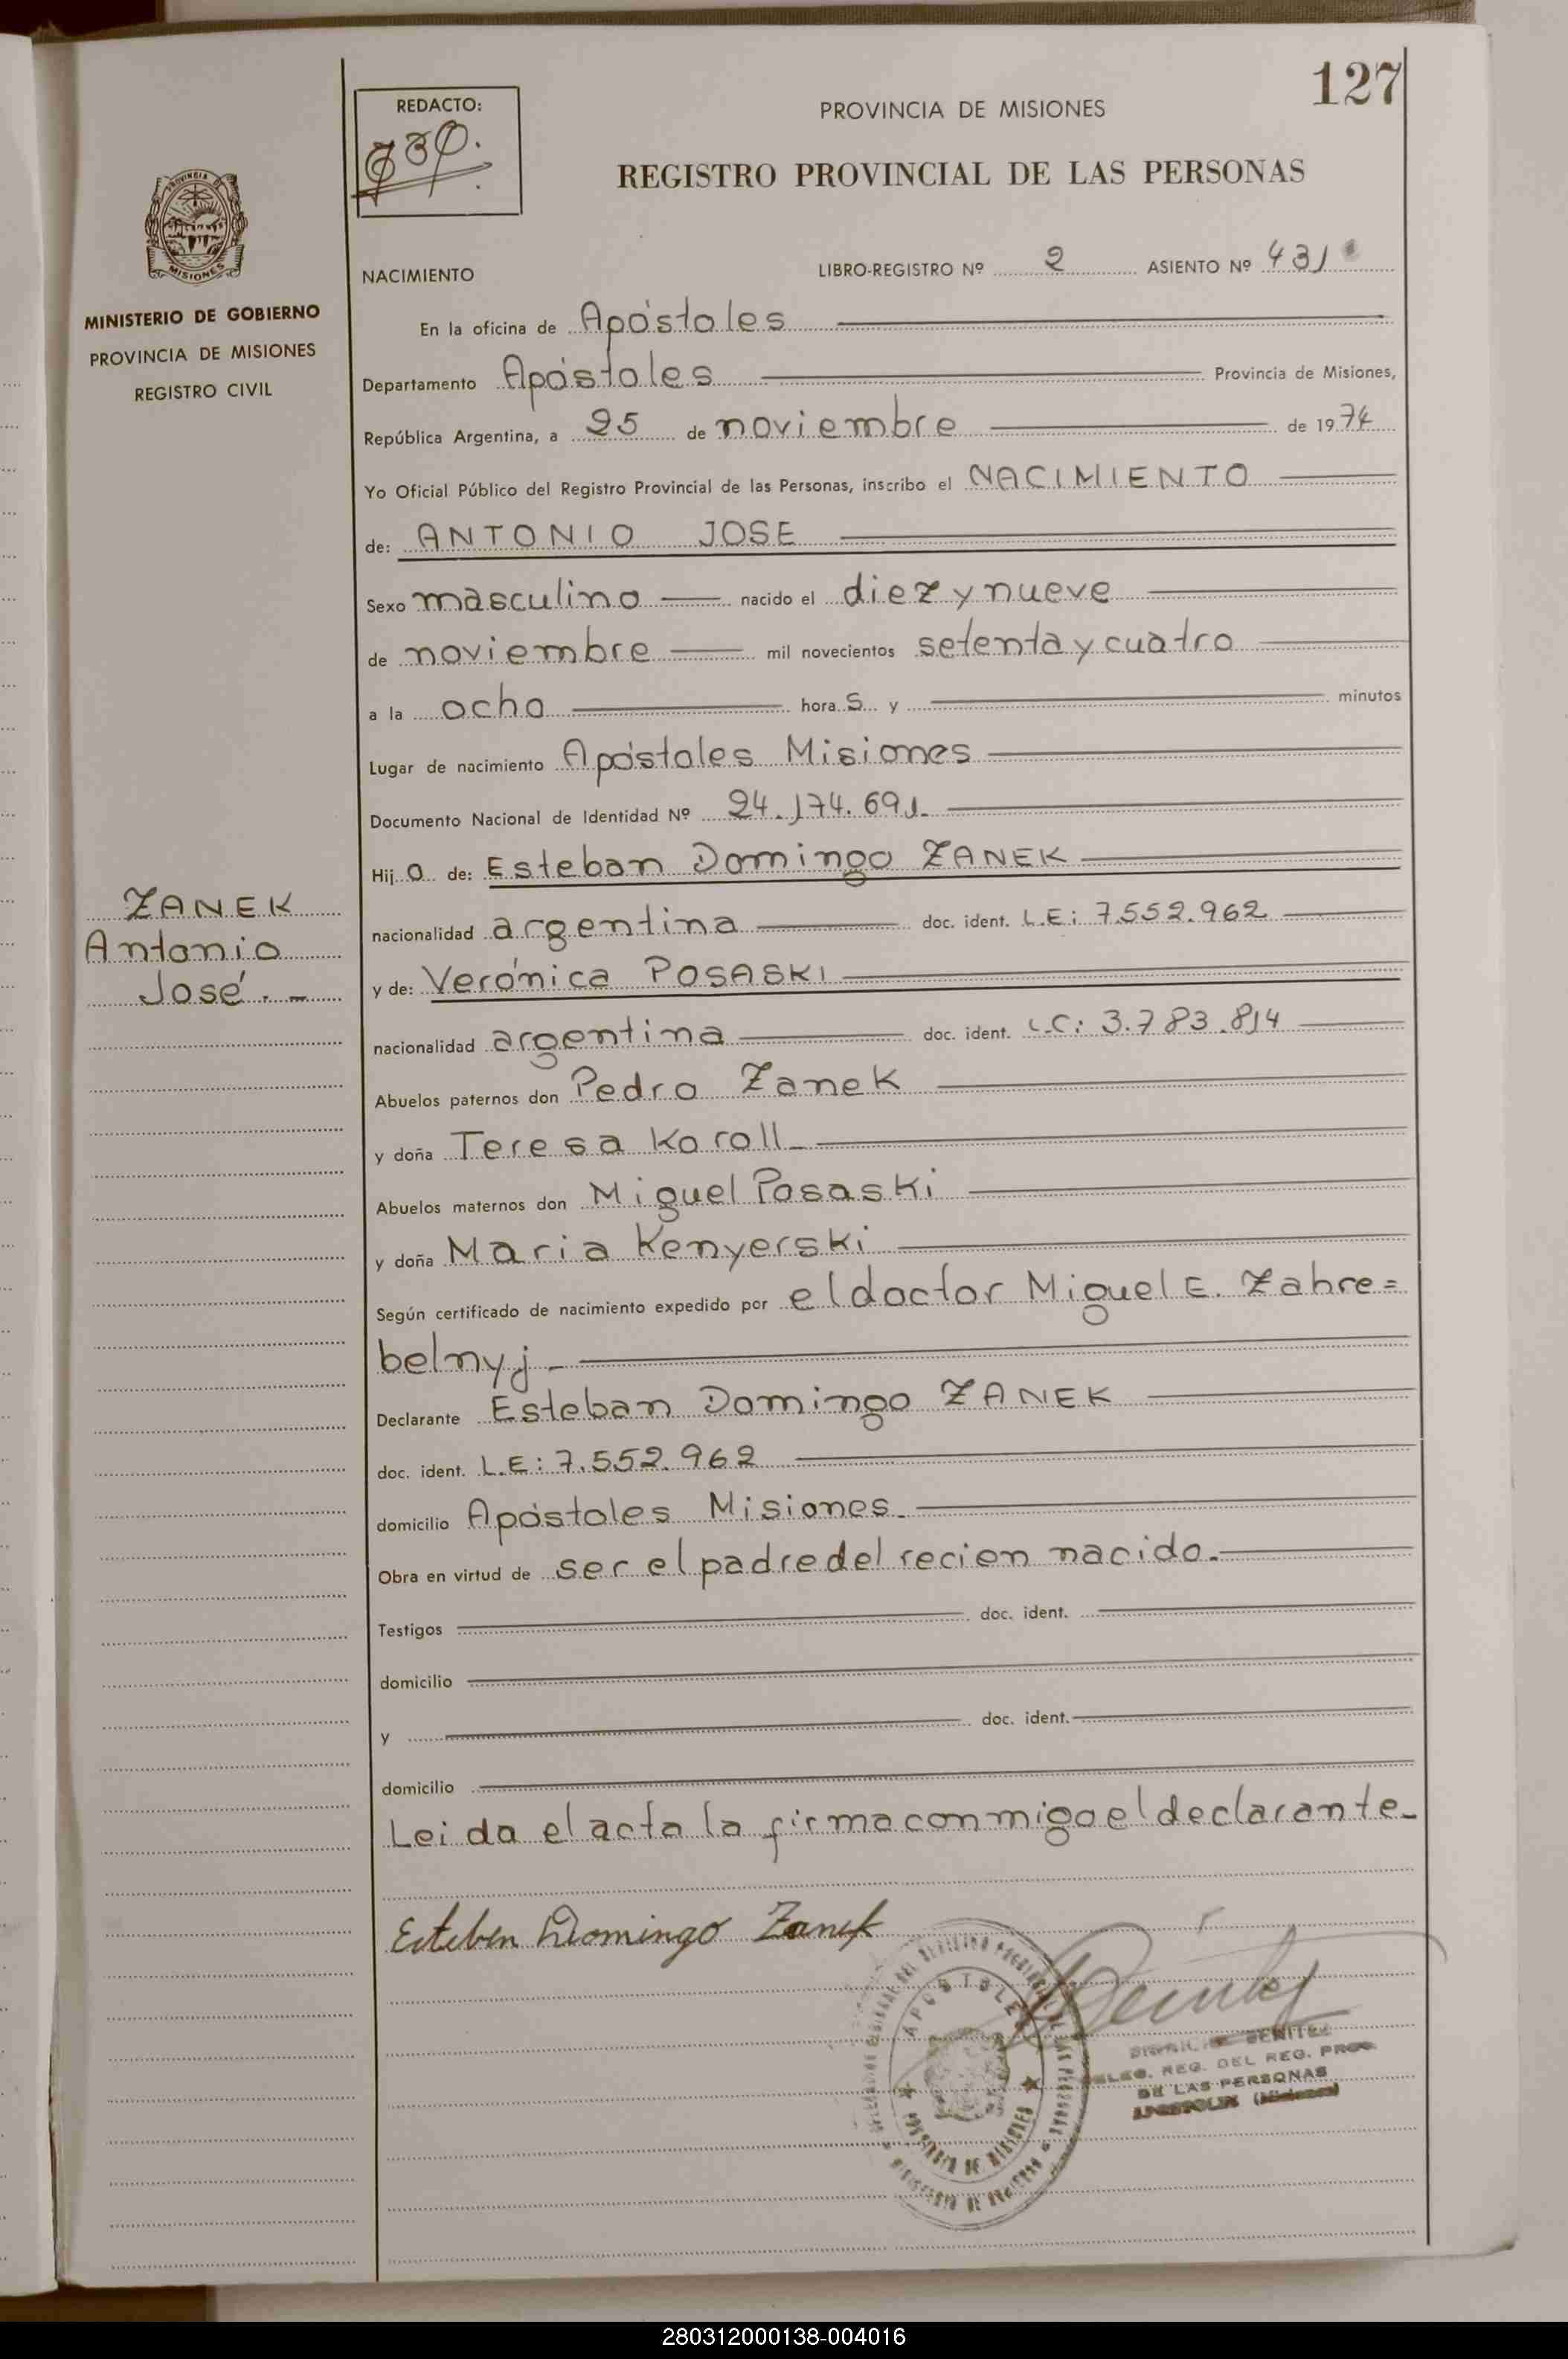 127
REDACTO:
PROVINCIA DE MISIONES
REGISTRO PROVINCIAL DE LAS PERSONAS
PROVINCIA DE
MISIONES
MINISTERIO DE GOBIERNO
PROVINCIA DE MISIONES
REGISTRO CIVIL
NACIMIENTO LIBRO-REGISTRO Nº 2 ASIENTO Nº 431
En la oficina de Apóstoles
Departamento Apóstoles Provincia de Misiones,
República Argentina, a 25 de noviembre de 1974
Yo Oficial Público del Registro Provincial de las Personas, inscribo el NACIMIENTO
de: ANTONIO JOSE
Sexo masculino nacido el diez y nueve
de noviembre mil novecientos setenta y cuatro
a la ocho hora s y minutos
Lugar de nacimiento Apóstoles Misiones
Documento Nacional de Identidad Nº 24.174.691.
Hij o de: Esteban Domingo ZANEK
nacionalidad argentina doc. ident. L.E: 7.552.962
y de: Verónica POSASKI
nacionalidad argentina doc. ident. L.C: 3.783.814
Abuelos paternos don Pedro Zanek
y doña Teresa Koroll
Abuelos maternos don Miguel Posaski
y doña Maria Kenyerski
Según certificado de nacimiento expedido por el doctor Miguel E. Zahre=
belnyj
Declarante Esteban Domingo ZANEK
doc. ident. L.E: 7.552.962
domicilio Apóstoles Misiones.
Obra en virtud de ser el padre del recien nacido.
Testigos doc. ident.
domicilio
y doc. ident.
domicilio
Leida el acta la firma conmigo el declarante
ZANEK
Antonio
José.-
Esteben Domingo Zanek
APOSTOLES
PROVINCIA DE MISIONES
BENITEZ
DELEG. REG. DEL REG. PROV.
DE LAS PERSONAS
APOSTOLES (Misiones)
280312000138-004016